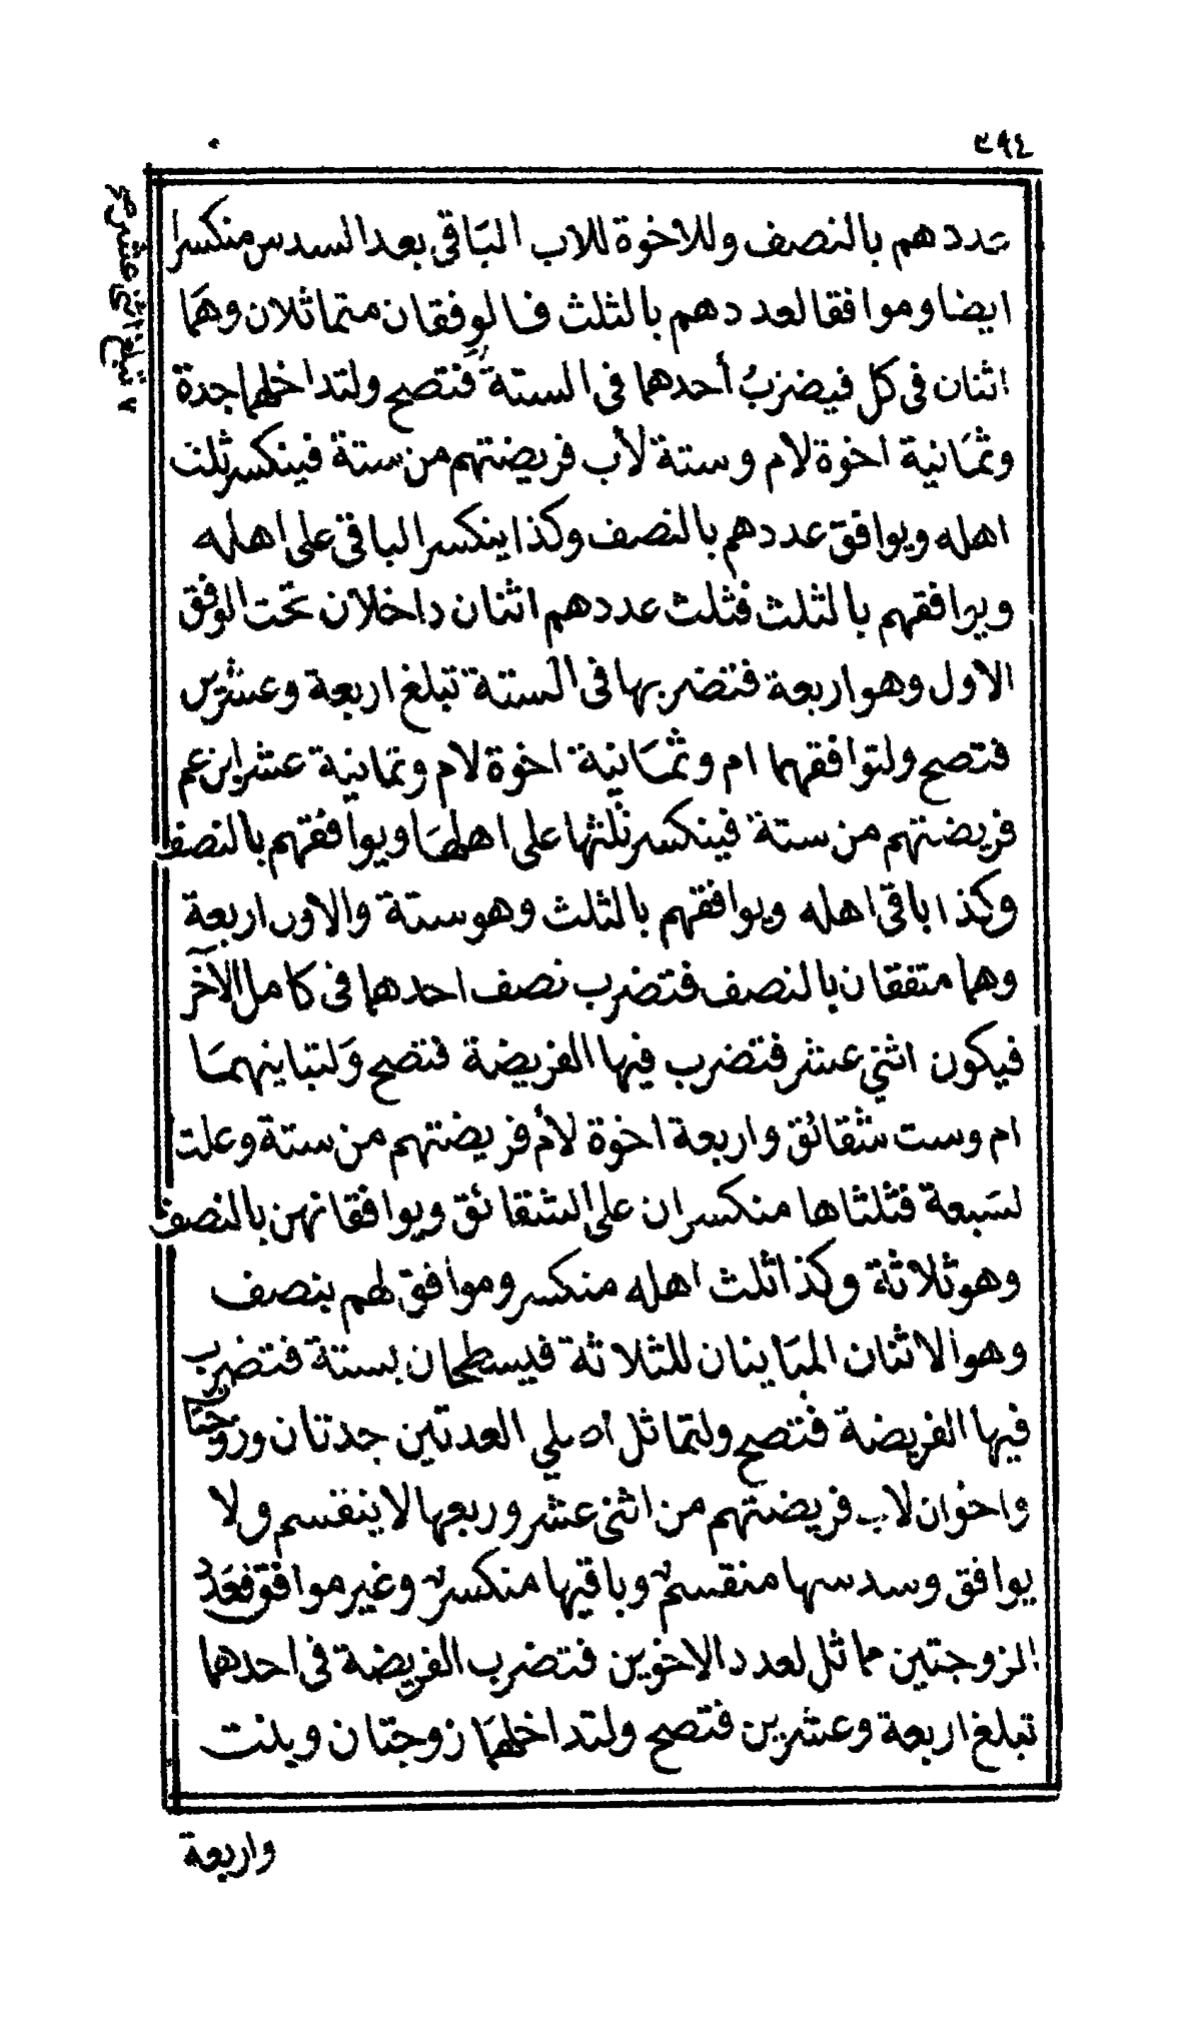 ٣٩٤
عددهم بالنصف وللاخوة للاب الباقى بعد السدس منكسرا
ايضا وموافقا لعددهم بالثلث فالوفقان متماثلان وهما
اثنان فى كل فيضربُ أحدهما فى الستة فتصح ولتداخلهما جدة
وثمانية اخوة لام وستة لأب فريضتهم من ستة فينكسر ثلث
اهله ويوافق عددهم بالنصف وكذا ينكسر الباقى على اهله
ويوافقهم بالثلث فثلث عددهم اثنان داخلان تحت الوفق
الاول وهو اربعة فتضربها فى الستة تبلغ اربعة وعشرين
فتصح ولتوافقهما ام وثمَانية اخوة لام وثمانية عشر ابن عم
فريضتهم من ستة فينكسر ثلثها على اهلهَا ويوافقهم بالنصف
وكذا باقى اهله ويوافقهم بالثلث وهو ستة والاول اربعة
وهما متفقان بالنصف فتضرب نصف احدهما فى كامل الآخر
فيكون اثنى عشر فتضرب فيها الفريضة فتصح وَلتباينهمَا
ام وست شقائق واربعة اخوة لأم فريضتهم من ستة وعلت
لسَبعة فثلثاها منكسران على الشقائق ويوافقانهن بالنصف
وهو ثلاثة وكذا ثلث اهله منكسر وموافق لهم بنصف
وهو الاثنان المتَباينان للثلاثة فيسطحان بستة فتضرب
فيها الفريضة فتصح ولتماثل اصلي العدتين جدتان وزوجتَان
واخوان لاب فريضتهم من اثنى عشر وربعها لا ينقسم ولا
يوافق وسدسها منقسم وباقيها منكسر وغير موافق فعَدد
الزوجتين مماثل لعدد الاخوين فتضرب الفريضة فى احدهما
تبلغ اربعة وعشرين فتصح ولتداخلهمَا زوجتان وبنت
واربعة
٧ تبلغ اثنى عشر صح